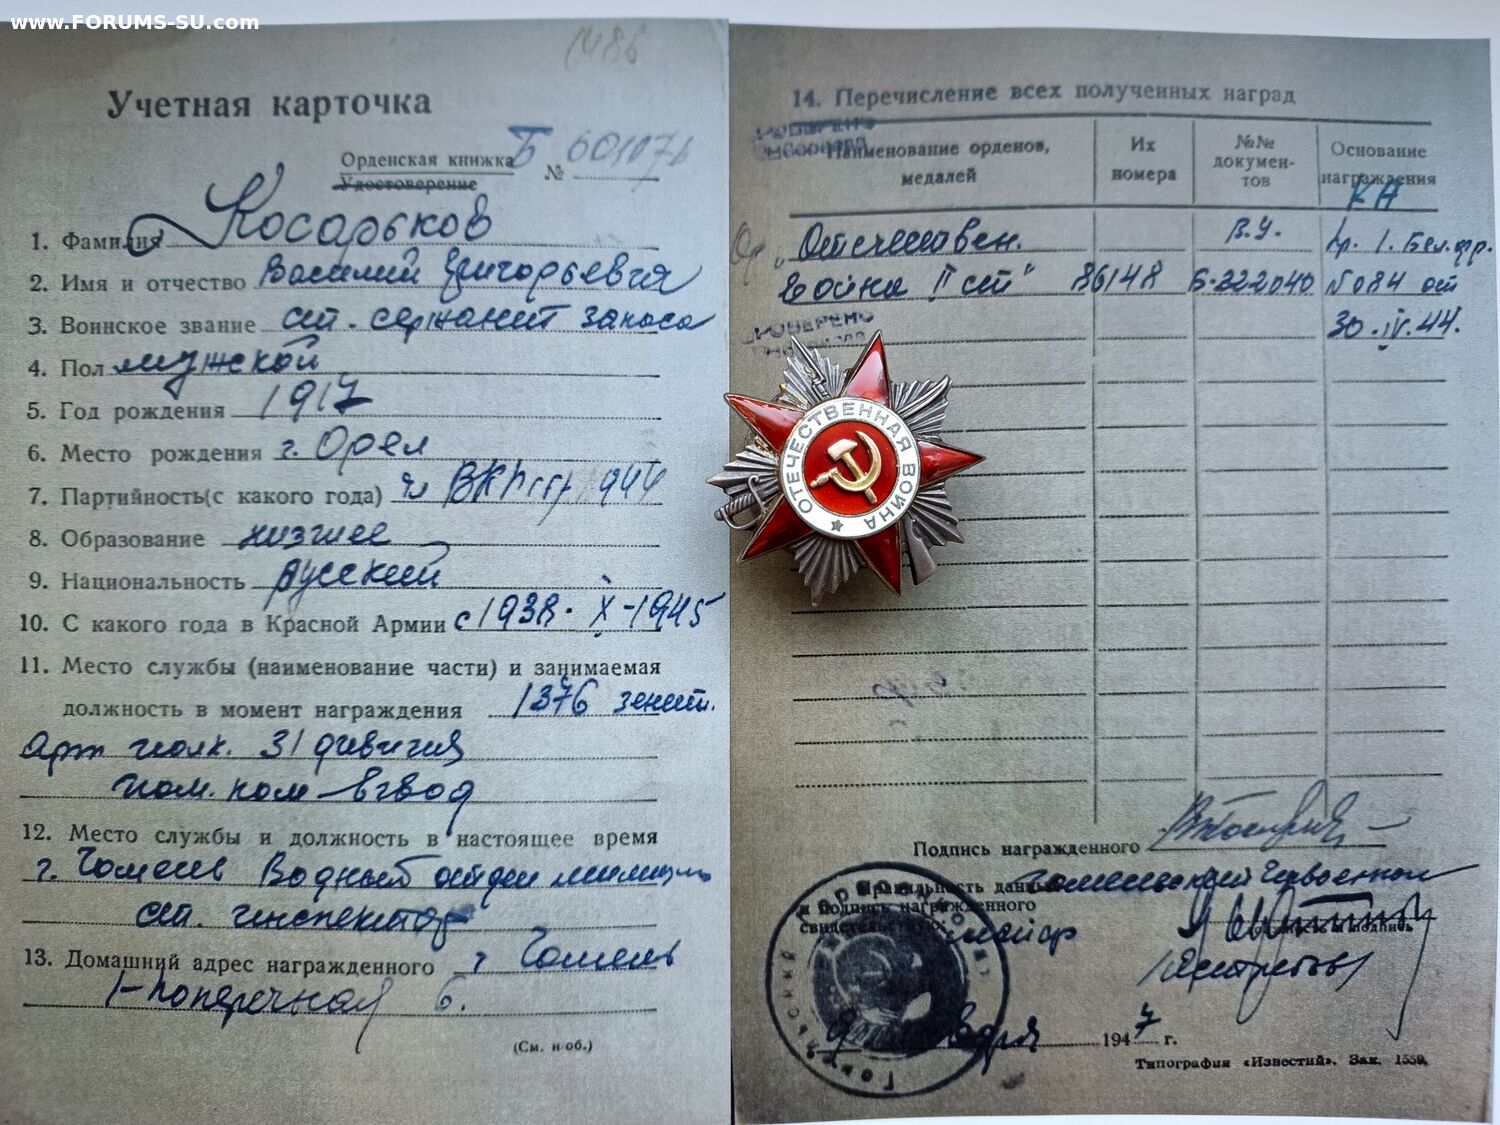 www.FORUMS-SU.com
1486
Учетная карточка
Орденская книжка Б № 601076
Удостоверение
1. Фамилия Косарьков
2. Имя и отчество Василий Григорьевич
3. Воинское звание ст. сержант запаса
4. Пол мужской
5. Год рождения 1917
6. Место рождения г. Орел
7. Партийность(с какого года) ВКП 1944
8. Образование низшее
9. Национальность русский
10. С какого года в Красной Армии с 1938 - X - 1945
11. Место службы (наименование части) и занимаемая
должность в момент награждения 1376 зенит.
арт полк. 31 дивизия
пом. ком взвод
12. Место службы и должность в настоящее время
г. Гомель Водный отдел милиции
ст. инспектор
13. Домашний адрес награжденного г Гомель
1-поперечная 6.
(См. н об.)
14. Перечисление всех полученных наград
ПРОВЕРЕНО
Наименование орденов, медалей
Их номера
№№ докумен-тов
Основание награждения
КА
Ор. „Отечествен. В.У. Пр. 1. Бел. фр.
война II ст" 86148 Б-222040 №084 от
ПРОВЕРЕНО
30.IV.44.
ОТЕЧЕСТВЕННАЯ ВОЙНА
Подпись награжденного
Правильность данных Гомельский Горвоенком
и подпись награжденного
свидетельствую: майор
должность и подпись
9 января 1947 г.
Типография «Известий». Зак. 1559.